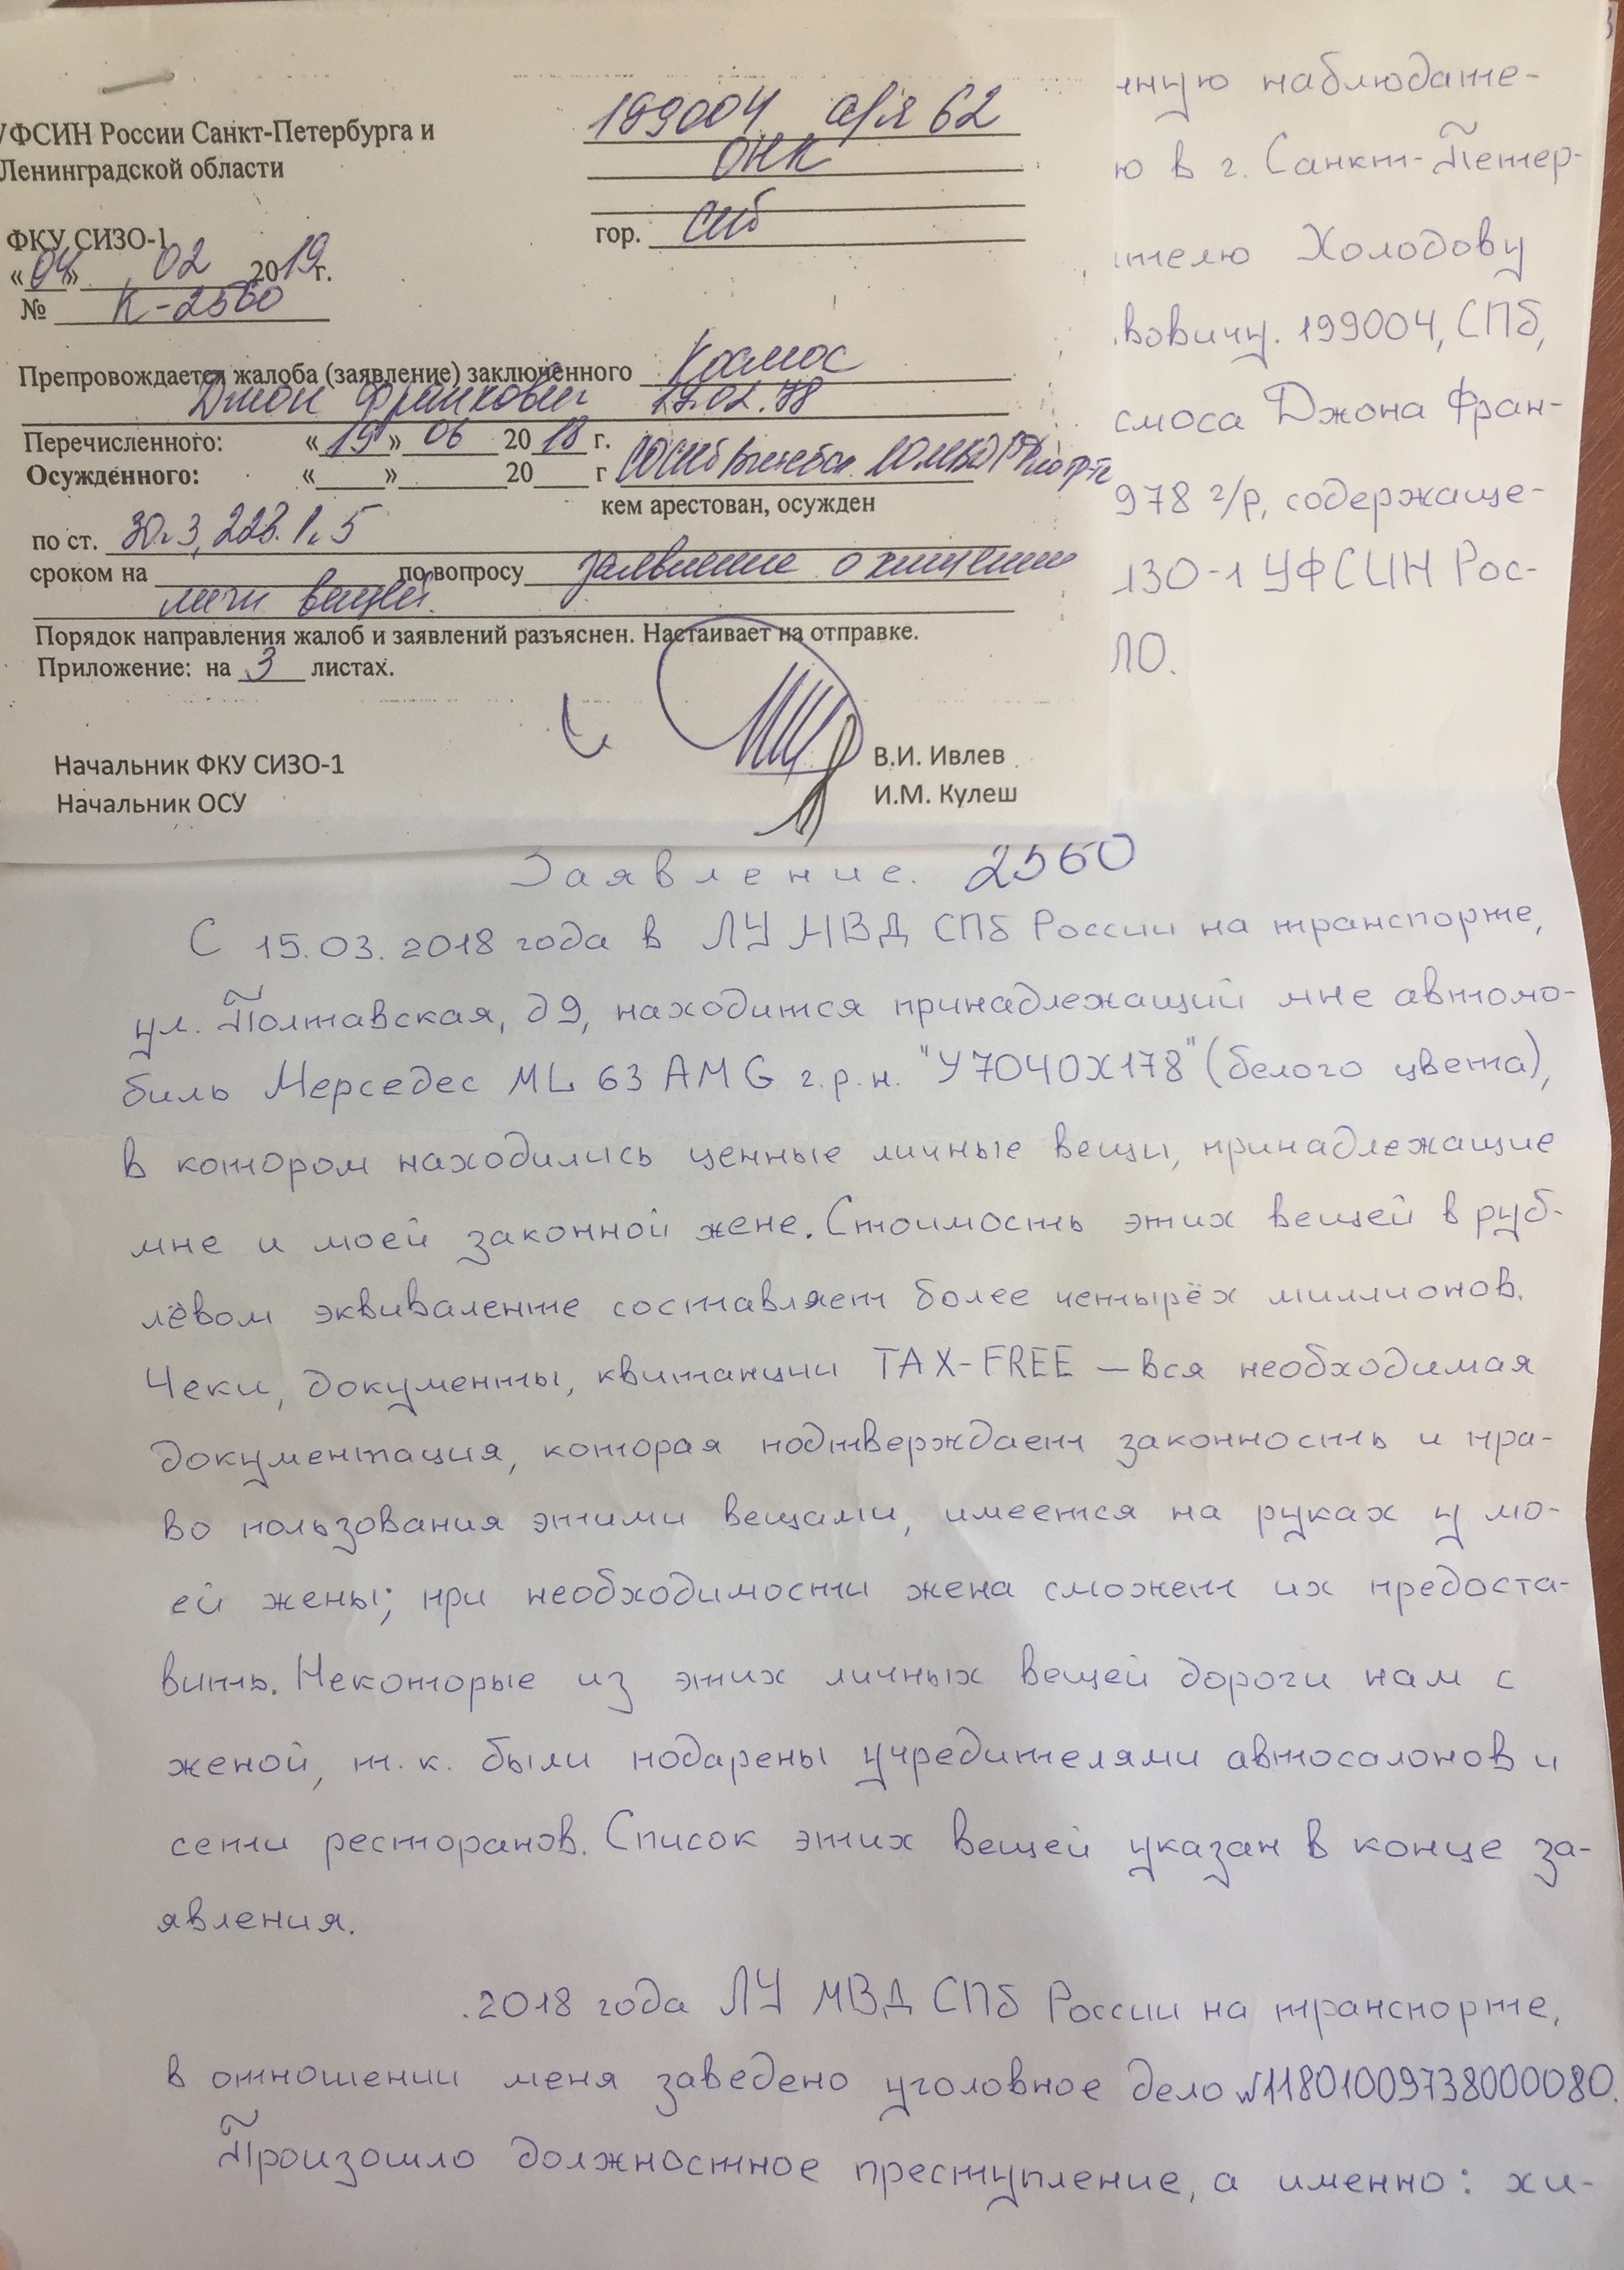 УФСИН России Санкт-Петербурга и
Ленинградской области
199004 а/я 62
ОНК
гор. СПб
ФКУ СИЗО-1
«04» 02 2019 г.
№ К-2560
Препровождается жалоба (заявление) заключенного Космос
Джон Франкович 17.02.78
Перечисленного: «19» 06 2018 г.
Осужденного: «    »        20    г
кем арестован, осужден
по ст. 30ч3, 228.1ч5
сроком на            по вопросу заявление о хищении
личн вещей.
Порядок направления жалоб и заявлений разъяснен. Настаивает на отправке.
Приложение: на 3 листах.
Начальник ФКУ СИЗО-1 В.И. Ивлев
Начальник ОСУ И.М. Кулеш
нную наблюдате-
ю в г. Санкт-Петер-
ителю Холодову
вовичу. 199004, СПб,
смоса Джона Фран-
978 г/р, содержаще-
ИЗО-1 УФСИН Рос-
ЛО.
Заявление. 2560
С 15.03.2018 года в ЛУ МВД СПб России на транспорте,
ул. Полтавская, д 9, находится принадлежащий мне автомо-
биль Мерседес ML 63 AMG г.р.н. "У704ОХ178" (белого цвета),
в котором находились ценные личные вещи, принадлежащие
мне и моей законной жене. Стоимость этих вещей в руб-
лёвом эквиваленте составляет более четырёх миллионов.
Чеки, документы, квитанции TAX-FREE — вся необходимая
документация, которая подтверждает законность и пра-
во пользования этими вещами, имеется на руках у мо-
ей жены; при необходимости жена сможет их предоста-
вить. Некоторые из этих личных вещей дороги нам с
женой, т.к. были подарены учредителями автосалонов и
сети ресторанов. Список этих вещей указан в конце за-
явления.
.2018 года ЛУ МВД СПб России на транспорте,
в отношении меня заведено уголовное дело №11801009738000080.
Произошло должностное преступление, а именно: хи-